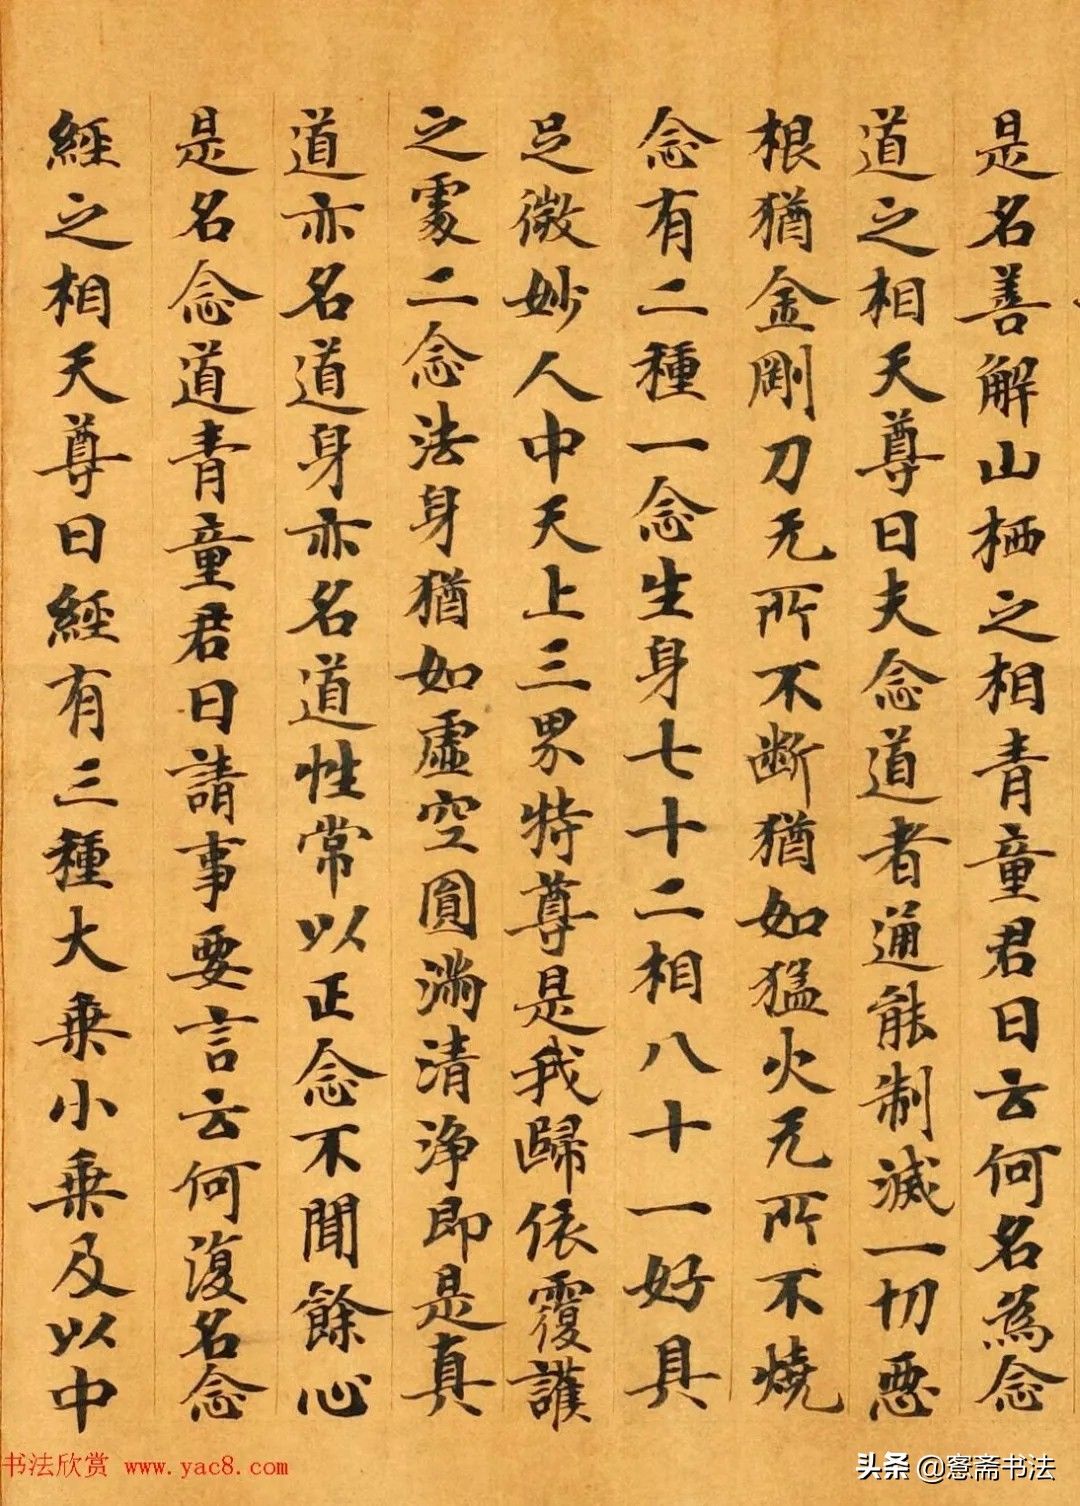 是名善解山栖之相青童君曰云何名為念
道之相天尊曰夫念道者通能制滅一切惡
根猶金剛刀无所不斷猶如猛火无所不燒
念有二種一念生身七十二相八十一好具
足微妙人中天上三界特尊是我歸依覆護
之處二念法身猶如虛空圓滿清淨即是真
道亦名道身亦名道性常以正念不聞餘心
是名念道青童君曰請事要言云何復名念
經之相天尊曰經有三種大乘小乘及以中
书法欣赏 www.yac8.com
头条 @愙斋书法